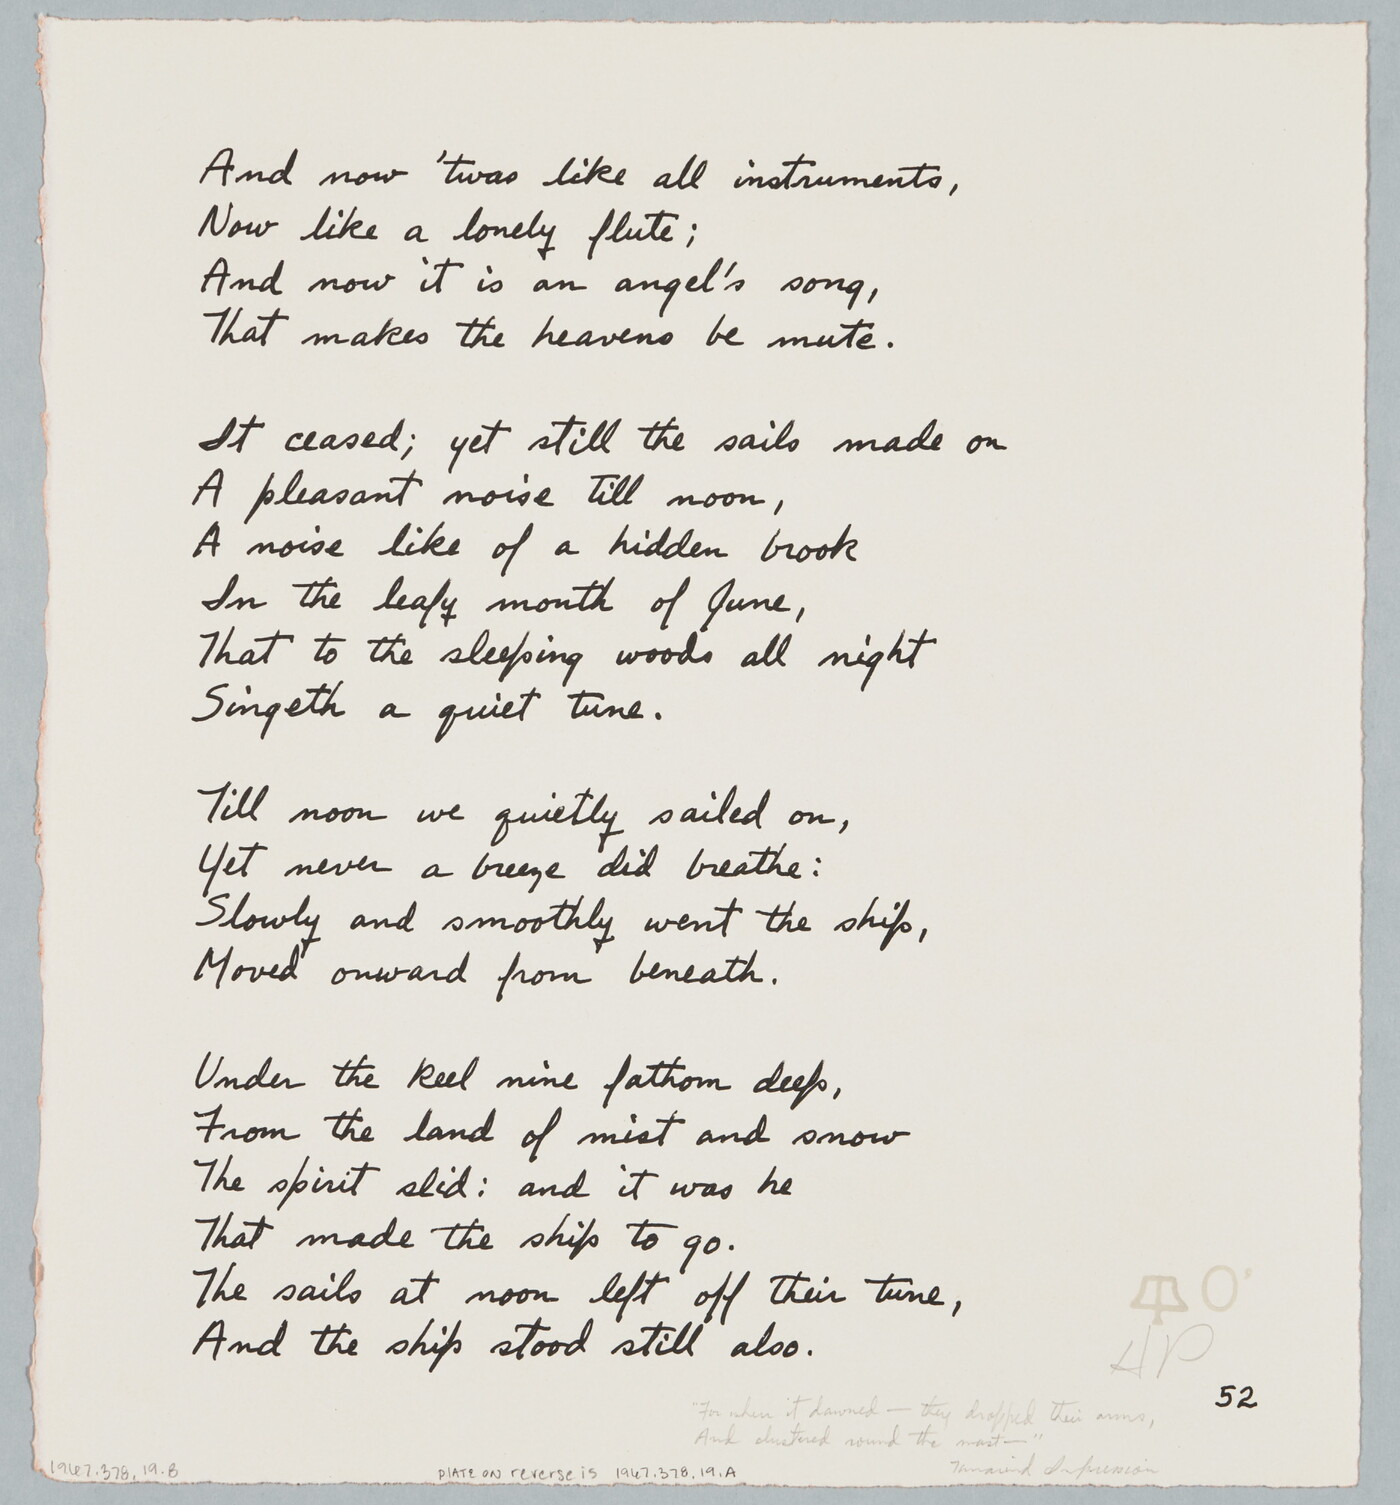 And now 'twas like all instruments,
Now like a lonely flute;
And now it is an angel's song,
That makes the heavens be mute.
It ceased; yet still the sails made on
A pleasant noise till noon,
A noise like of a hidden brook
In the leafy month of June,
That to the sleeping woods all night
Singeth a quiet tune.
Till noon we quietly sailed on,
Yet never a breeze did breathe:
Slowly and smoothly went the ship,
Moved onward from beneath.
Under the keel nine fathom deep,
From the land of mist and snow
The spirit slid: and it was he
That made the ship to go.
The sails at noon left off their tune,
And the ship stood still also.
AP
52
"For when it dawned — they dropped their arms,
And clustered round the mast—"
Tamarind Impression
1967.378.19.B
PLATE ON reverse is 1967.378.19.A